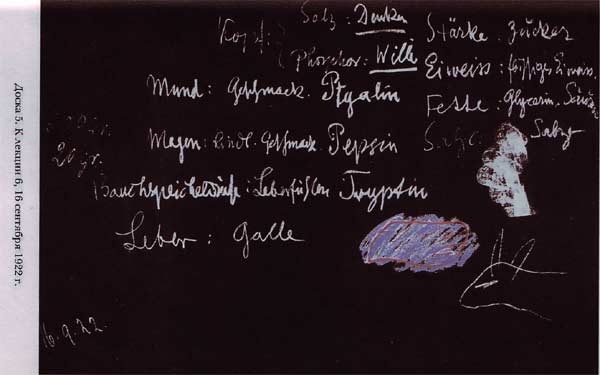 Salz : Denken
Kopf :
Phosphor : Wille
Mund : Geschmack. Ptyalin
Magen : Geschmack. Pepsin
Bauchspeicheldrüse : Leberfühlen Trypsin
Leber : Galle
Stärke . Zucker
Eiweiss : flüssiges Eiweiss.
Fette : Glycerin . Säuren
Salze : Salze
20 gr.
16.9.22.
Доска 5. К лекции 6, 16 сентября 1922 г.